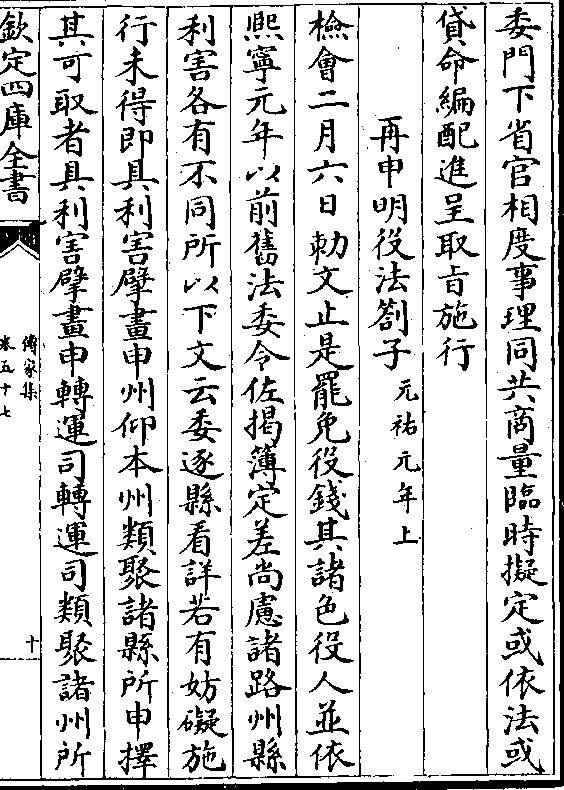 委門下省官相度事理同共商量臨時擬定或依法或
貸命編配進呈取㫖施行
再申明役法劄子元祐元年上
檢會二月六日勅文止是罷免役錢其諸色役人並依
熙寧元年以前舊法委令佐揭簿定差尚慮諸路州縣
利害各有不同所以下文云委逐縣看詳若有妨礙施
行未得即具利害擘畫申州仰本州類聚諸縣所申擇
其可取者具利害擘畫申轉運司轉運司類聚諸州所
欽定四庫全書
傳家集
卷五十七
十